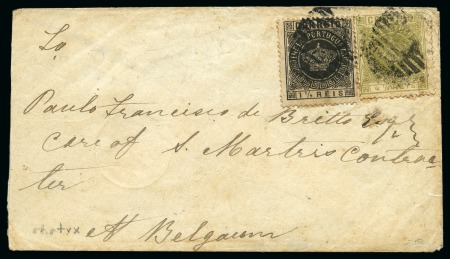 To,
INDIA PORTUGUEZA
1½ REIS
Paulo Francisco de Britto Esqr
care of S. Martris contrac
ter
At Belgaum